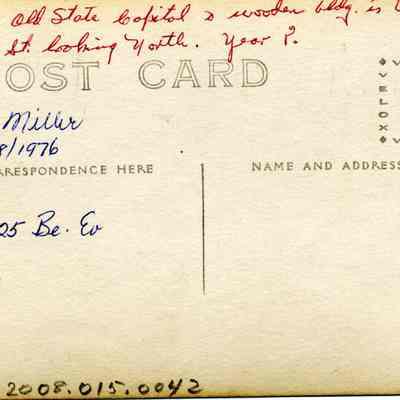 Old State Capitol & wooden bldg. is
St. looking North. Year ?.
POST CARD
Miller
8/1976
RRESPONDENCE HERE
NAME AND ADDRESS
25 Be. Ev
2008.015.0042